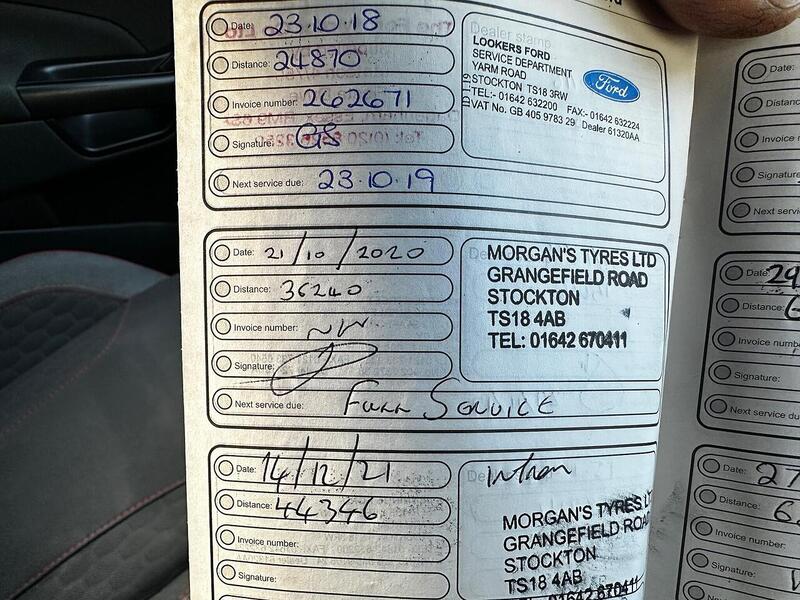 Date: 23.10.18
Distance: 24870
Invoice number: 262671
Signature: GS
Next service due: 23.10.19
Dealer stamp
LOOKERS FORD
SERVICE DEPARTMENT
YARM ROAD
STOCKTON TS18 3RW
TEL:- 01642 632200 FAX:- 01642 632224
VAT No. GB 405 9783 29 Dealer 61320AA
Ford
Date: 21/10/2020
Distance: 36240
Invoice number:
Signature:
Next service due: Full Service
MORGAN'S TYRES LTD
GRANGEFIELD ROAD
STOCKTON
TS18 4AB
TEL: 01642 670411
Date: 14/12/21
Distance: 44346
Invoice number:
Signature:
MORGAN'S TYRES
GRANGEFIELD ROA
STOCKTON
TS18 4AB
01642 670411
Date:
Distanc
Invoice n
Signatur
Next serv
Date: 29
Distance:
Invoice numb
Signature:
Next service
Date: 27
Distance: 6
Invoice num
Signature:
Next